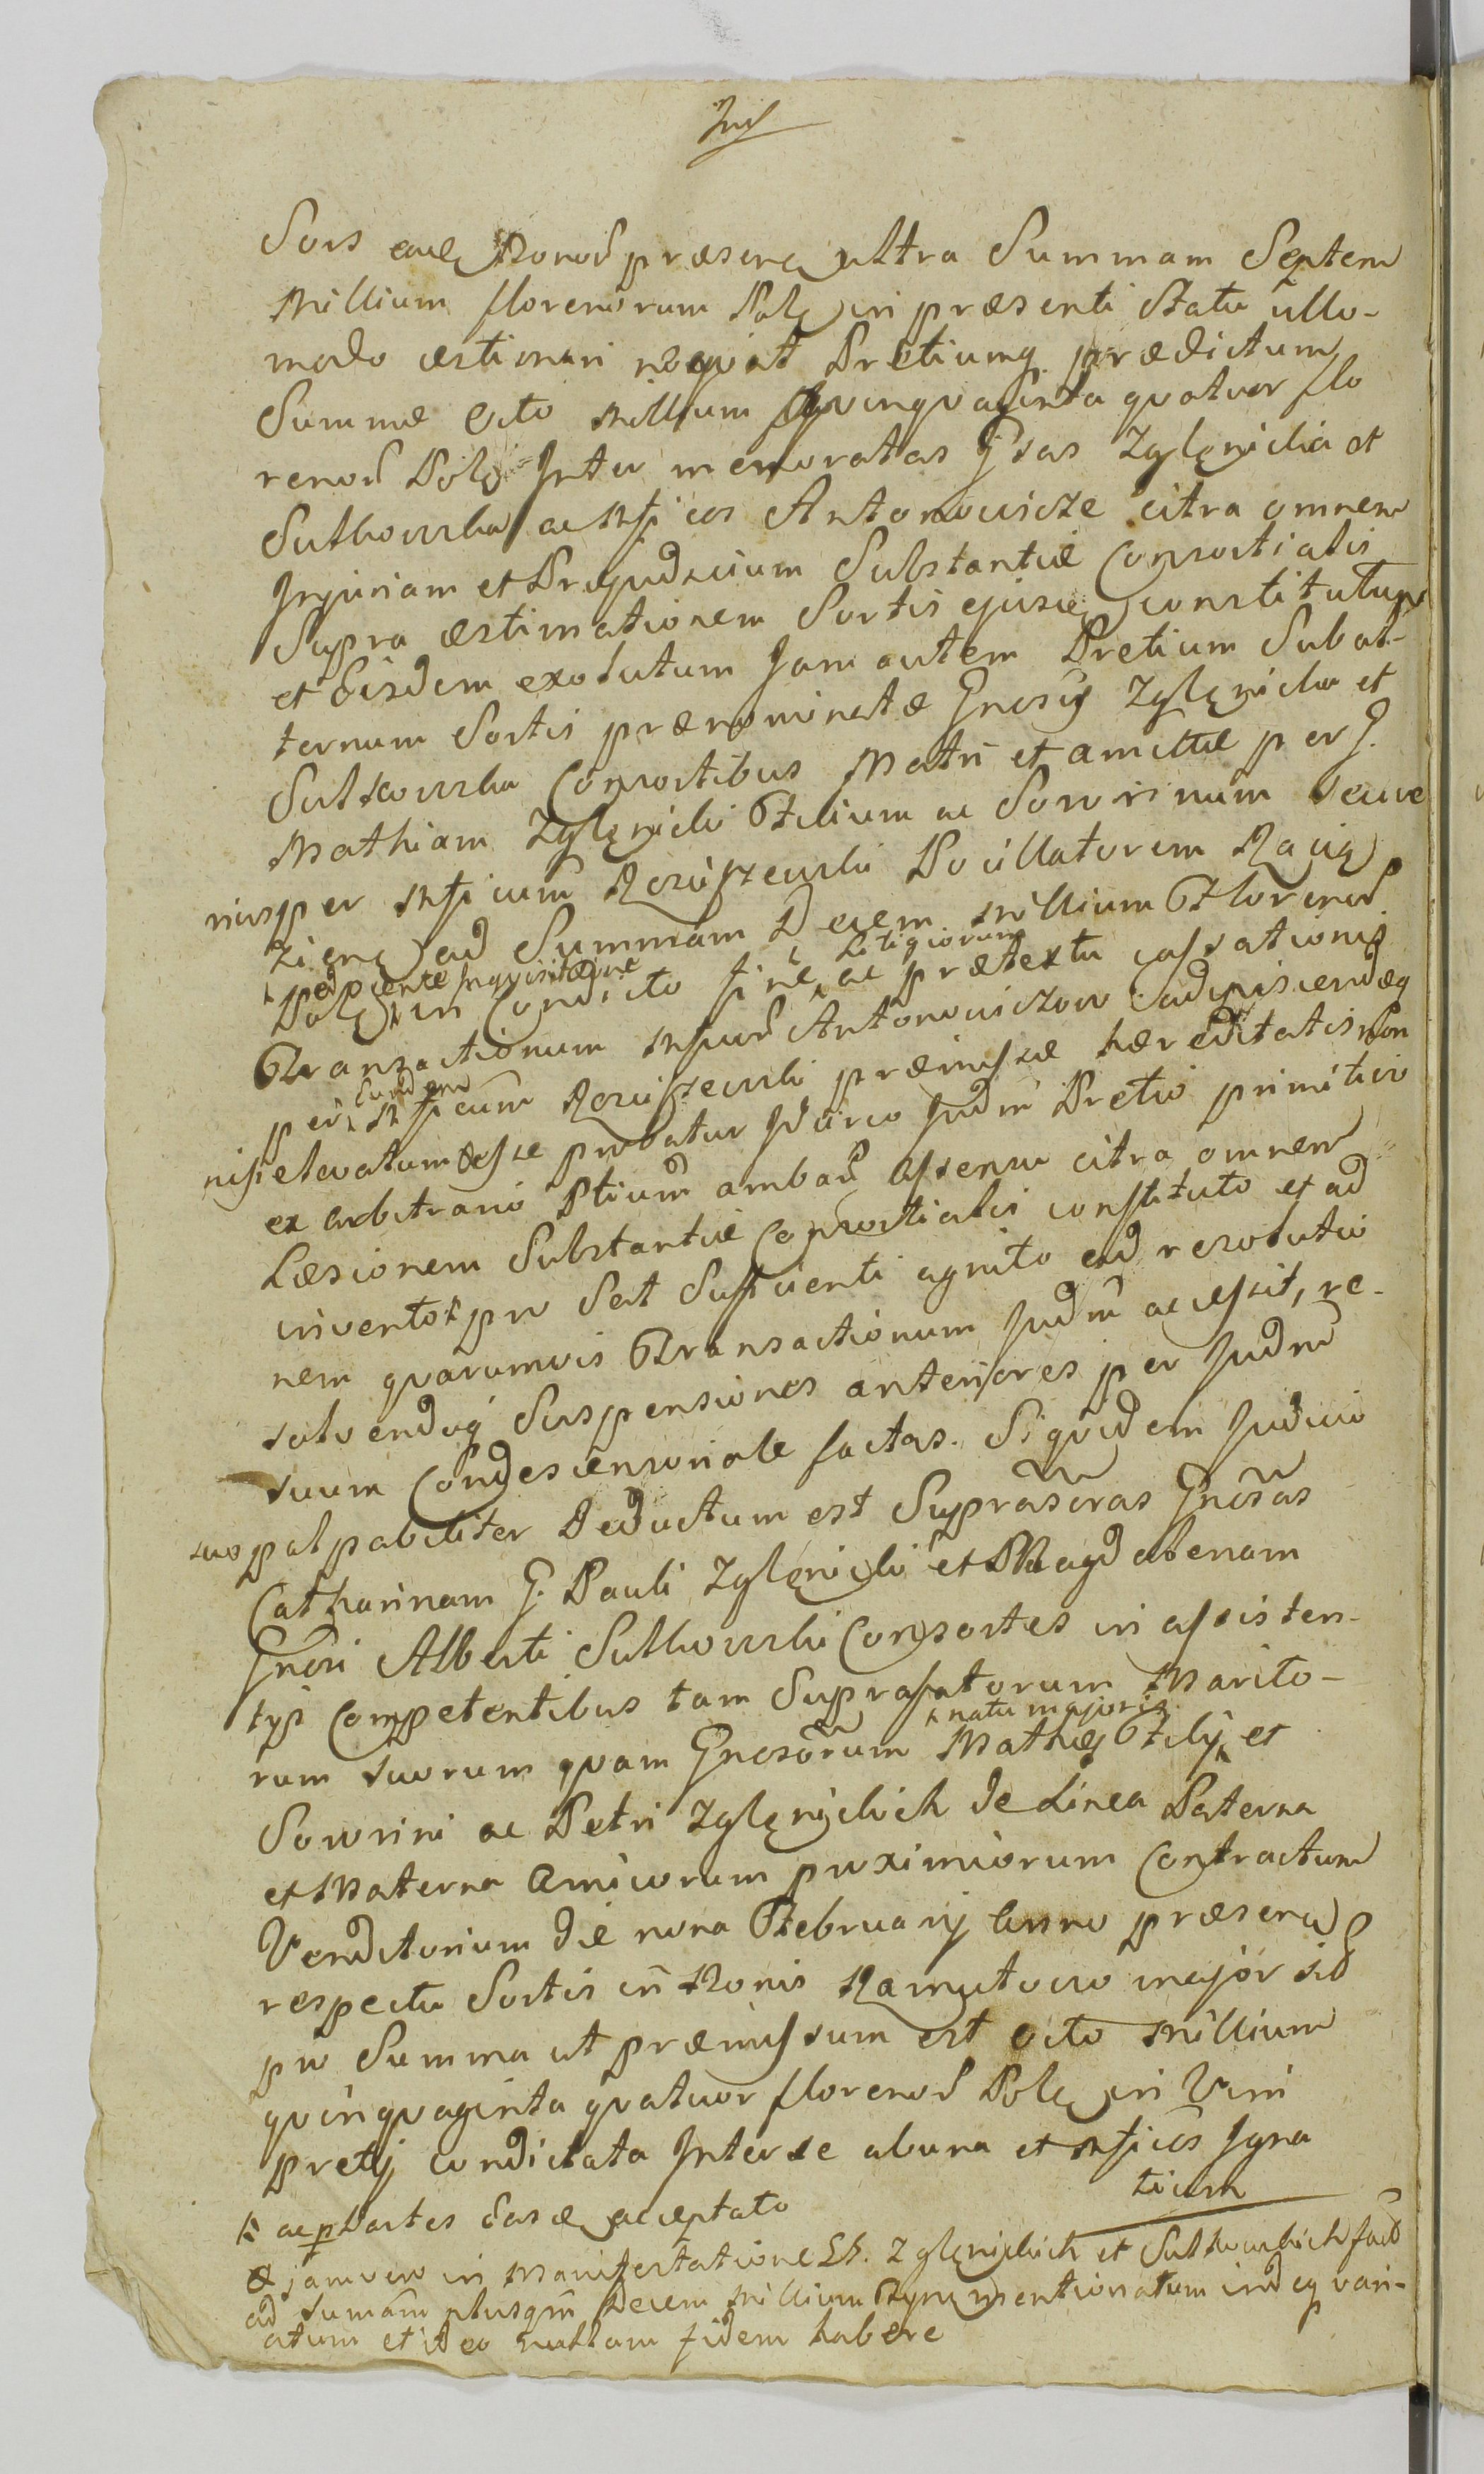 Sors Bonor præsene ultra Summam Septem
Millium florenorum Pole in præsenti Statu ullo-
modo æstimari neqvit Pretiumq prædictum
Summæ Octo Millium Qvinqvaginta qvatuor flo
renor Pole Inter memoratas Gsas Zglęnicka et
Sutkowska ac Mficos Antonowicze citra omnem
Injuriam et Præjudicium Substantiæ Consortialis
Supra æstimationem Sortis ejusd constitutum
et Eisdem exolutum Jam autem Pretium Subal-
ternum Sortis prænominatæ Gnosis Zglęnicka et
Sutkowska Consortibus Matri et amittæ per G.
Mathiam Zglęnicki Filium ac Sororinum
per Mficum Pocillatorem
ad Summam Decem Millium Florenor
Pole in Condicto sine Litigiorum ac prætextu cassationis
Transactionum Mficor Antonowiczow adipiscendæq
per eundem Mficum præmissæ hæreditatis non
nisi elevatum esse probatur Idcirco Judm Pretio primitivo
ex arbitrario Ptium ambar assensu citra omnem
Læsionem Substantiæ Consortialis constituto et ad
invento pro Sat Sufficienti agnito ad resolutio
nem qvarumvis Transactionum Judm accessit, re-
solvendoq Suspensiones anteriores per Judm
suum Condescensoriale factas. Siqvidem Judicio
suo palpabiliter Deductum est Suprascras Gnosas
Catharinam G. Pauli Zglęnicki et Magdalenam
Gnosi Alberti Sutkowski Consortes in assisten-
tys Competentibus tam Suprafatorum Marito-
rum suorum qvam Gnosorum Mathiæ Filij natu majoris et
Sororini ac Petri Zglęnickich de Linea Paterna
et Materna Amicorum proximiorum Contractum
Venditorium die nona February Anno præsenti
respectu Sortis in Bonis Ramutowo major sid
pro Summa ut præmissum est octo Millium
qvinqvaginta qvatuor florenor Pole in Vim
pretij condictata Inter se ab una et Mficos Igna
tium
ac p Partes Easd acceptato
jam vero in Manifestatione Zglęnickich et Sutkowskich
ad sumam plusqm Decem Millium mentionatum indeq vari-
atum et ideo nullam fidem habere